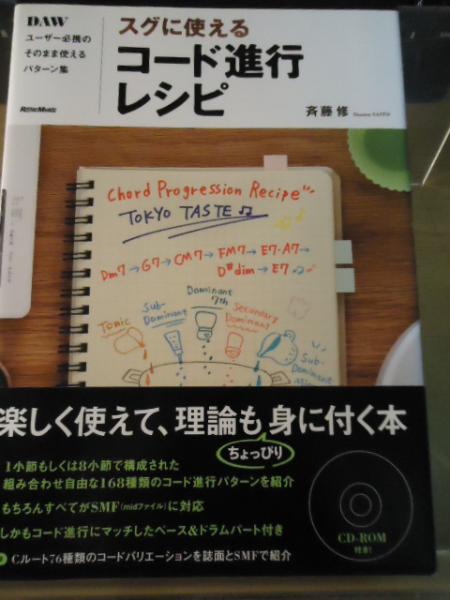 DAW
ユーザー必携の
そのまま使える
パターン集
スグに使える
コード進行
レシピ
斉藤 修
Chord Progression Recipe
TOKYO TASTE♫
Dm7→G7→CM7→FM7→E7・A7→
D#dim→E7
Tonic
Sub-
Dominant
Dominant
7th
Secondary
Dominant
Sub-
Dominant
楽しく使えて、理論も身に付く本
ちょっぴり
1小節もしくは8小節で構成された
組み合わせ自由な168種類のコード進行パターンを紹介
もちろんすべてがSMF(midファイル)に対応
しかもコード進行にマッチしたベース&ドラムパート付き
Cルート76種類のコードバリエーションを誌面とSMFで紹介
CD-ROM
付き!